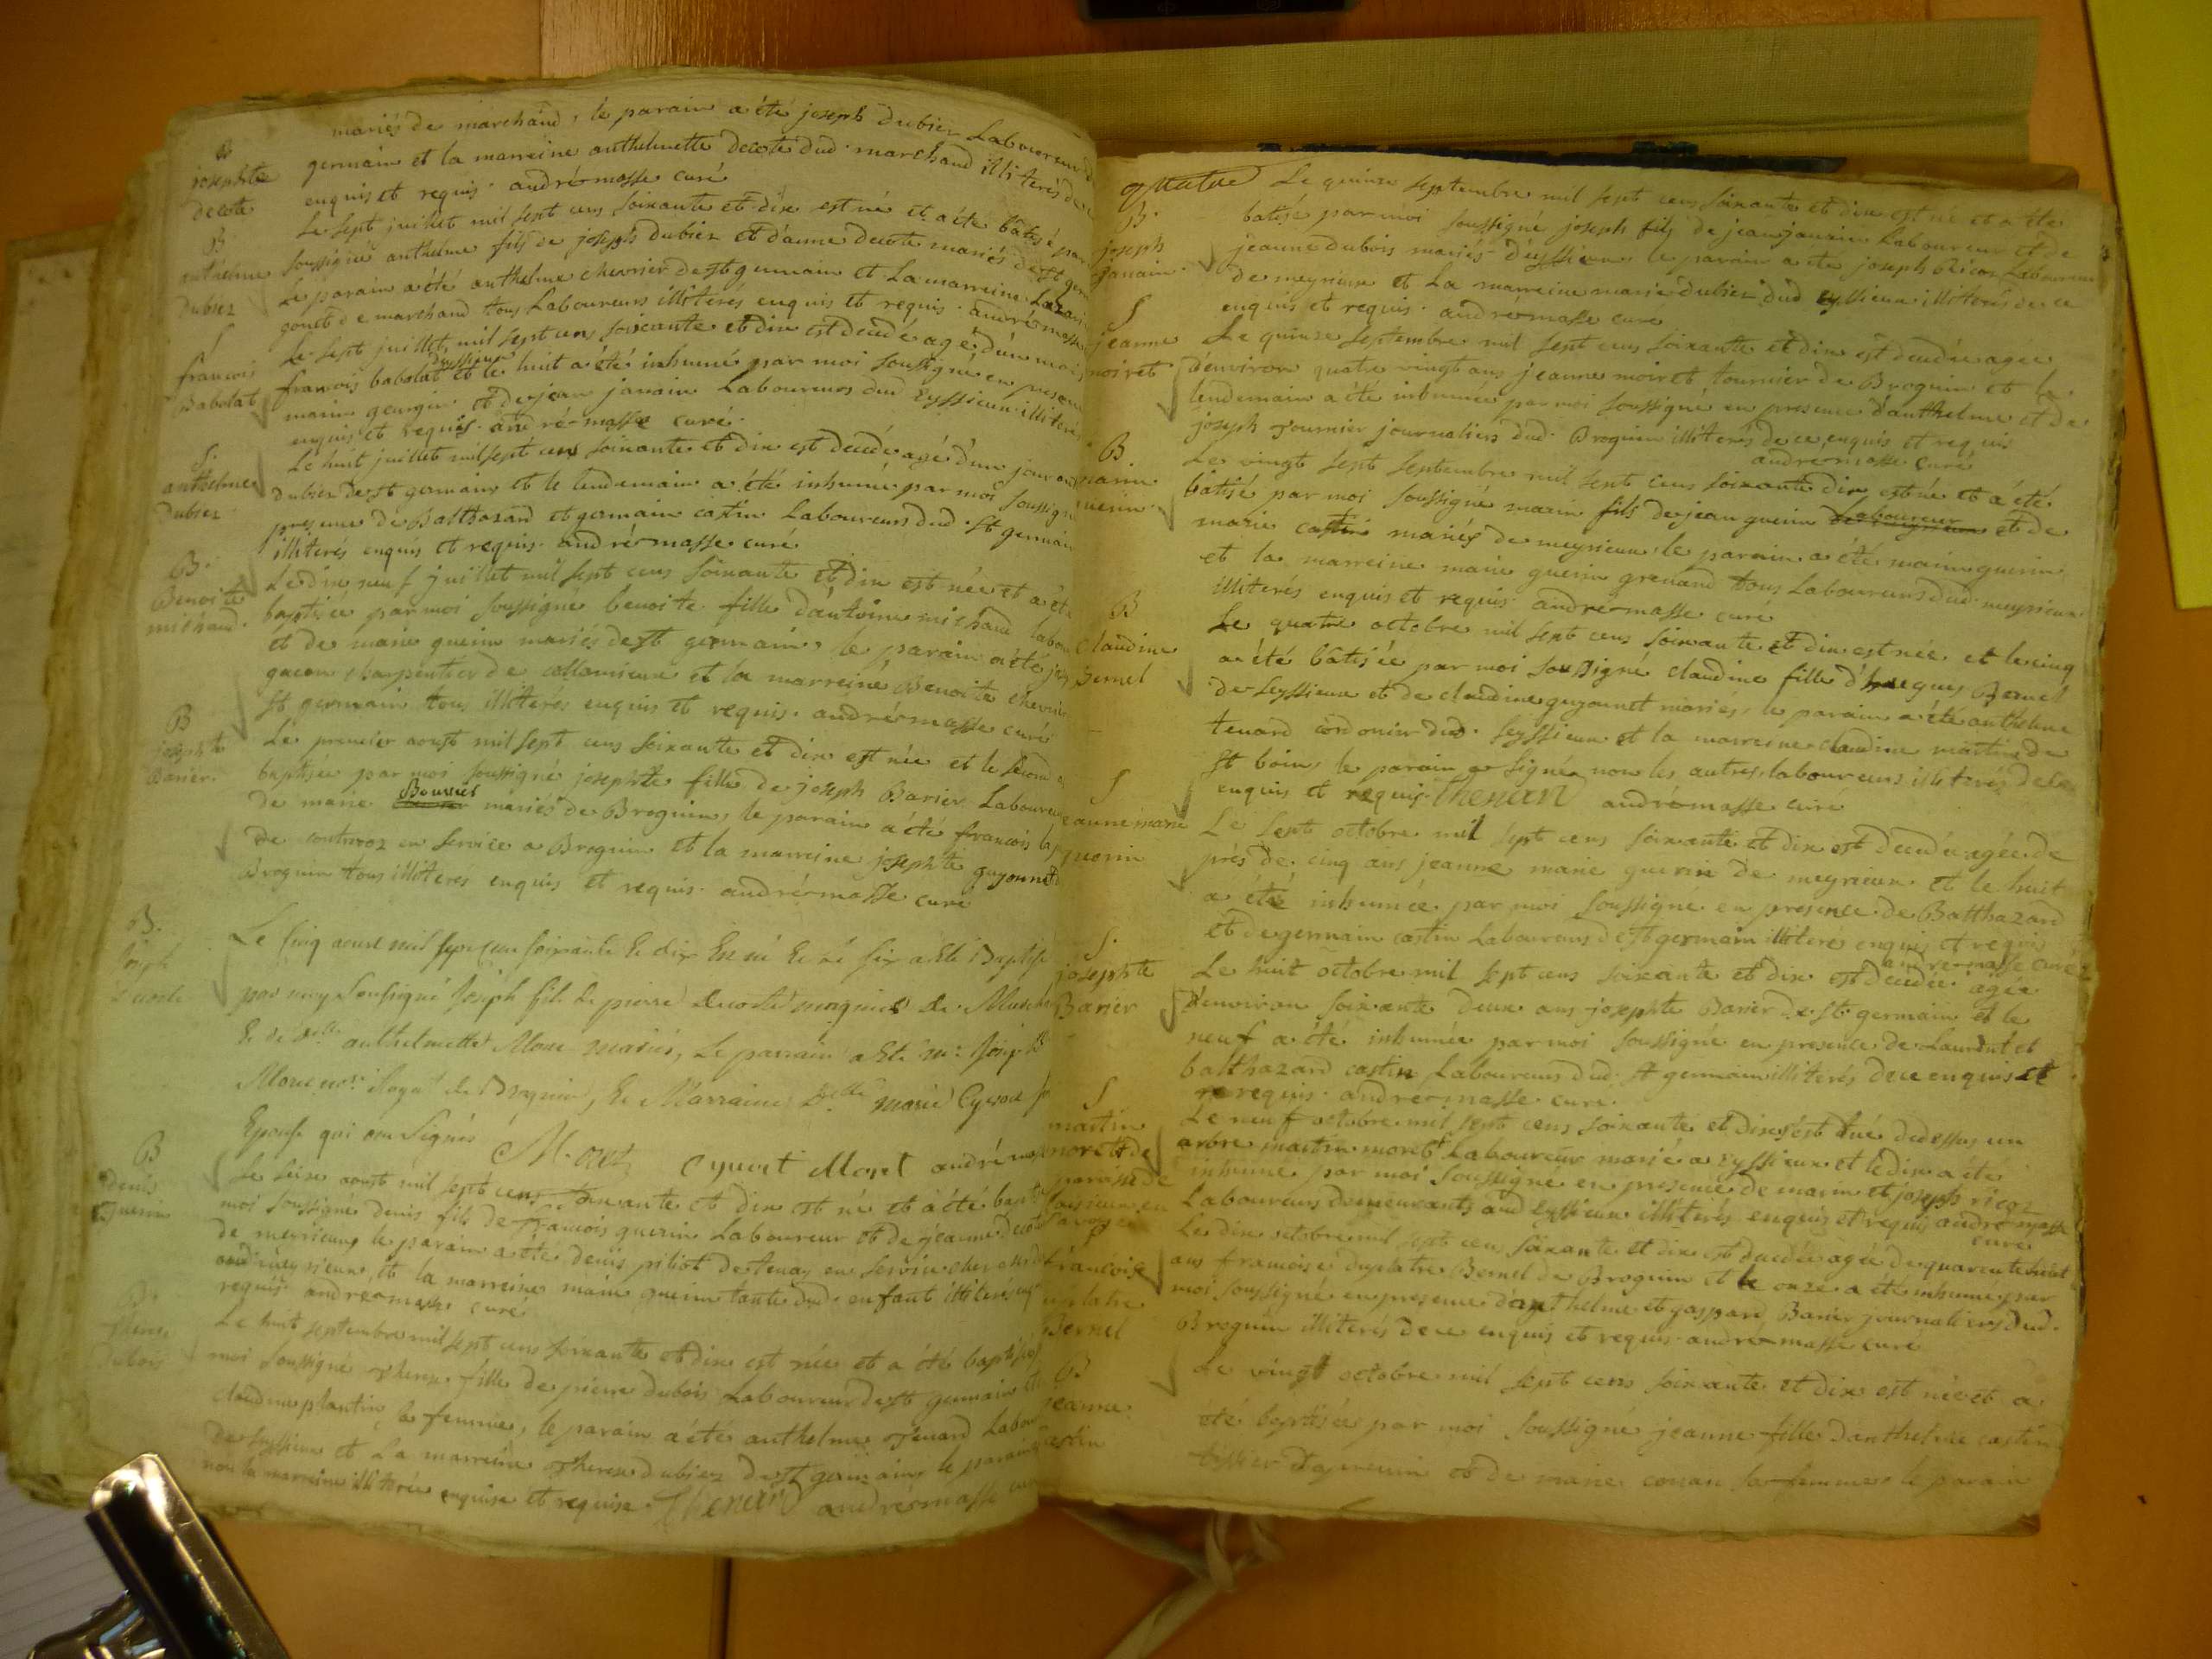 mariés de marchand, le parain a été joseph dubiez Laboureur
B
josephte
decote
germain et la marreine anthelmette decote dud. marchand illiterés de
enquis et requis. andré masse curé
B
anthelme
Dubiez
Le sept juillet mil sept cens soixante et dix est né et a été batisé par
soussigné anthelme fils de joseph dubiez et d'anne decote mariés de st ger
Le parain a été anthelme chevrier de st germain et La marreine Lazari
gonet de marchand tous Laboureurs illiterés enquis et requis. andré masse
S
francois
Babolat
Le sept juillet mil sept cens soixante et dix est decedé agé d'un mois
francois babolat d'eyssieux et le huit a été inhumé par moi soussigné en presen
marin georgin et de jean janain Laboureurs dud Eyssieux illiterés
enquis et requis. andré masse curé.
S.
anthelme
Dubiez
Le huit juillet mil sept cens soixante et dix est decedé agé d'un jour an
dubiez de st germain et le lendemain a été inhumé par moi soussigné
presence de Balthazard et germain castin Laboureurs dud. st germain
illiterés enquis et requis. andré masse curé
B.
Benoite
michaud.
Le dix neuf juillet mil sept cens soixante et dix est née et a été
baptisée par moi soussigné benoite fille d'antoine michaud labou
et de marie guerin mariés de st germain, le parain a été
charpentier de et la marreine Benoite chevrier
st germain tous illiterés enquis et requis. andré masse curé
B
josephte
Barier.
Le premier aoust mil sept cens soixante et dix est née et le second a
baptisée par moi soussigné josephte fille de joseph Barier Laboureur
de marie Bourret mariés de Brognin, le parain a été francois
de en service a Brognin et la marreine josephte guyonnet
Brognin tous illiterés enquis et requis. andré masse curé
B.
Joseph
Decoste
Le cinq aoust mil sept cens soixante et dix est né et le six a été Baptisé
par moy soussigné Joseph fils de pierre decoste de March
et de Delle anthelmette Moret mariés, Le parrain a été mr Joseph
Moret nore Royal de Brognin, et Marraine Delle marie Cyvoct
Epouse qui ont signés Moret Cyvoct Moret andré mas
B
Denis
guerin
Le seize aoust mil sept cens soixante et dix est né et a été bapt
moi soussigné denis fils de francois guerin Laboureur et de jeanne
de meyrieux, le parain a été denis pitiot de tenay en service
meyrieux, et la marreine marie guerin tante dud. enfant illiterés enq
requis andré masse curé
B.
therese
Dubois
Le huit septembre mil sept cens soixante et dix est née et a été baptisée
moi soussigné therese fille de pierre dubois Laboureur de st germain et
claudine plantin, sa femme, le parain a été anthelme thenard Labou
de seyssieux et La marreine therese dubiez de st germain, le parain
non la marreine illiterée enquise et requise. Thenard andré masse curé
B.
joseph
janain
Le quinze septembre mil sept cens soixante et dix est né et a été
batisé par moi soussigné joseph fils de jean janain Laboureur et de
jeanne dubois mariés d'eyssieux, le parain a été joseph Laboureur
de meyrieux et La marreine marie dubiez dud eyssieux illiterés de ce
enquis et requis. andré masse curé
S
jeanne
moiret
Le quinze septembre mil sept cens soixante et dix est decedée agée
d'environ quatre vingt ans jeanne moiret fournier de Brognin et le
lendemain a été inhumée par moi soussigné en presence d'anthelme et de
joseph fournier journaliers dud. Brognin illiterés de ce enquis et requis
andré masse curé
B
marin
guerin
Le vingt sept septembre mil sept cens soixante dix est né et a été
batisé par moi soussigné marin fils de jean guerin Laboureur et de
marie castin mariés de meyrieux, le parain a été marin guerin
et la marreine marie guerin grenand tous Laboureurs dud. meyrieux
illiterés enquis et requis. andré masse curé
B
claudine
Bernel
Le quatre octobre mil sept cens soixante et dix est née et le cinq
a été bâtisée par moi soussigné claudine fille d' Bernel
de seyssieux et de claudine guyonnet mariés, le parain a été anthelme
tenard cordonier dud. seyssieux et la marreine claudine martin de
st boin, le parain a signé non les autres, laboureurs illiterés de ce
enquis et requis. thenard andré masse curé
S
jeanne marie
guerin
Le sept octobre mil sept cens soixante et dix est decedée agée de
près de cinq ans jeanne marie guerin de meyrieux et le huit
a été inhumée par moi soussigné en presence de Balthazard
et de germain castin Laboureurs de st germain illiteré enquis et requis
andré masse curé
S.
josephte
Barier
Le huit octobre mil sept cens soixante et dix est decedée agée
d'environ soixante deux ans josephte Barier de st. germain et le
neuf a été inhumée par moi soussigné en presence de Laurent et
balthazard castin Laboureurs dud. st germain illiterés de ce enquis et
requis. andré masse curé.
S
martin
moret de
paroisse de
en
savoye
Le neuf octobre mil sept cens soixante et dix s'est tué dedessus un
arbre martin moret Laboureur marié a Eyssieux et le dix a été
inhumé par moi soussigné en presence de marin et joseph
Laboureurs demeurants aud Eyssieux illiterés enquis et requis andré masse
curé
francoise
duplatre
Bernel
Le dix octobre mil sept cens soixante et dix est decedée agée de quarante huit
ans francoise duplatre Bernel de Brognin et le onze a été inhumée par
moi soussigné en presence d'anthelme et gaspard Barier journaliers dud.
Brognin illiterés de ce enquis et requis. andré masse curé
B
jeanne
castin
Le vingt octobre mil sept cens soixante et dix est née et a
été baptisée par moi soussigné jeanne fille d'anthelme castin
tissier et de marie sa femme le parain